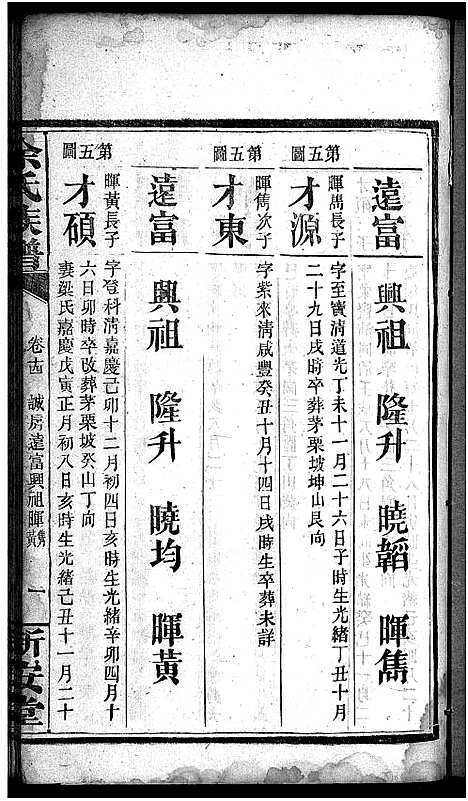 遠富 興祖 隆升 曉韜 暉雋
第五圖
才源
暉雋長子 字至寶清道光丁未十一月二十六日子時生光緒丁丑十月
二十九日戌時卒葬茅栗坡坤山艮向
第五圖
才東
暉雋次子 字紫來清咸豐癸丑十月十四日戌時生卒葬未詳
遠富 興祖 隆升 曉均 暉黃
第五圖
才碩
暉黃長子 字登科清嘉慶己卯十二月初四日亥時生光緒辛卯四月十
六日卯時卒改葬茅栗坡癸山丁向
妻梁氏嘉慶戊寅正月初八日亥時生光緒己丑十一月二十
余氏族譜 卷十四 誠房遠富興祖暉雋黃 一 新安堂